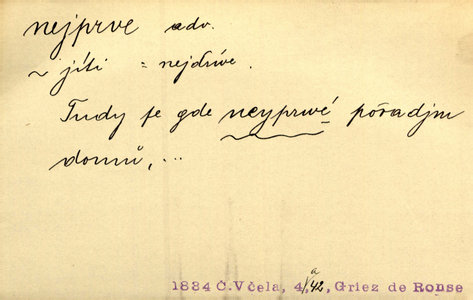 nejprve adv.
~ jíti = nejdříve.
Tudy se gde neyprwé pořadjm
domů, ...
1834 Č.Včela, 4/a 42, Griez de Ronse